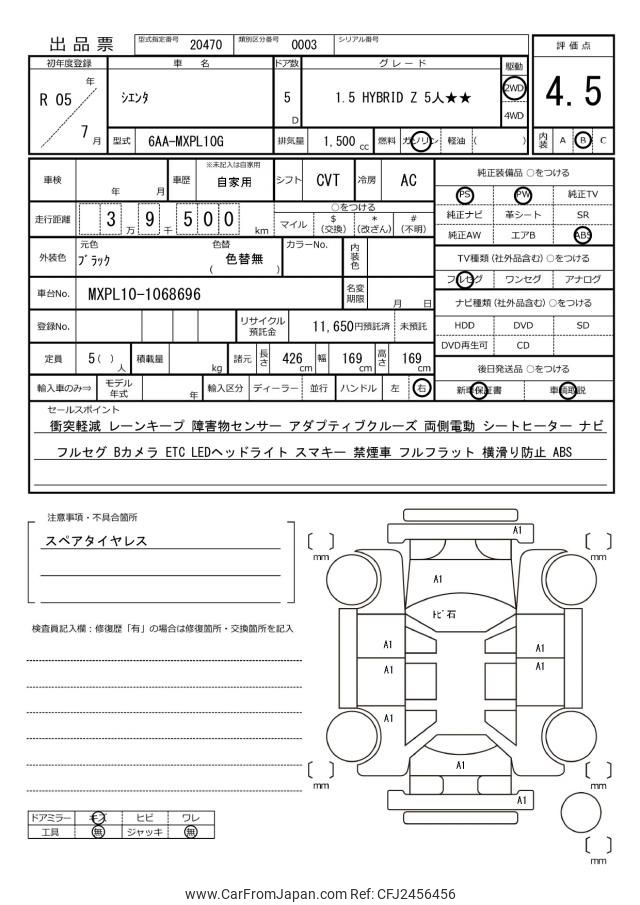 出品票 型式指定番号 20470 類別区分番号 0003 シリアル番号
評価点
4.5
初年度登録 車名 ドア数 グレード 駆動
R 05 年 / 7 月
シエンタ 5 D 1.5 HYBRID Z 5人★★ 2WD
4WD
型式 6AA-MXPL10G 排気量 1,500 cc 燃料 ガソリン 軽油 ( ) 内装 A B C
車検 年 月 車歴 ※未記入は自家用 自家用 シフト CVT 冷房 AC
走行距離 3 万 9 千 5 0 0 km
○をつける
マイル $ (交換) * (改ざん) # (不明)
外装色 元色 ブラック 色替 ( 色替無 ) カラーNo. 内装色
車台No. MXPL10-1068696 名変期限 月 日
登録No. リサイクル預託金 11,650円預託済 未預託
定員 5 ( ) 人 積載量 kg 諸元 長さ 426 cm 幅 169 cm 高さ 169 cm
輸入車のみ⇒ モデル年式 年 輸入区分 ディーラー 並行 ハンドル 左 右
純正装備品 ○をつける
PS PW 純正TV
純正ナビ 革シート SR
純正AW エアB ABS
TV種類(社外品含む)○をつける
フルセグ ワンセグ アナログ
ナビ種類(社外品含む)○をつける
HDD DVD SD
DVD再生可 CD
後日発送品 ○をつける
新車保証書 車輌取説
セールスポイント
衝突軽減 レーンキープ 障害物センサー アダプティブクルーズ 両側電動 シートヒーター ナビ
フルセグ Bカメラ ETC LEDヘッドライト スマキー 禁煙車 フルフラット 横滑り防止 ABS
注意事項・不具合箇所
スペアタイヤレス
検査員記入欄:修復歴「有」の場合は修復箇所・交換箇所を記入
A1
mm mm
A1
トビ石
A1 A1
A1 A1
A1
A1
mm mm
A1
mm
ドアミラー キズ ヒビ ワレ
工具 無 ジャッキ 無
www.CarFromJapan.com Ref: CFJ2456456